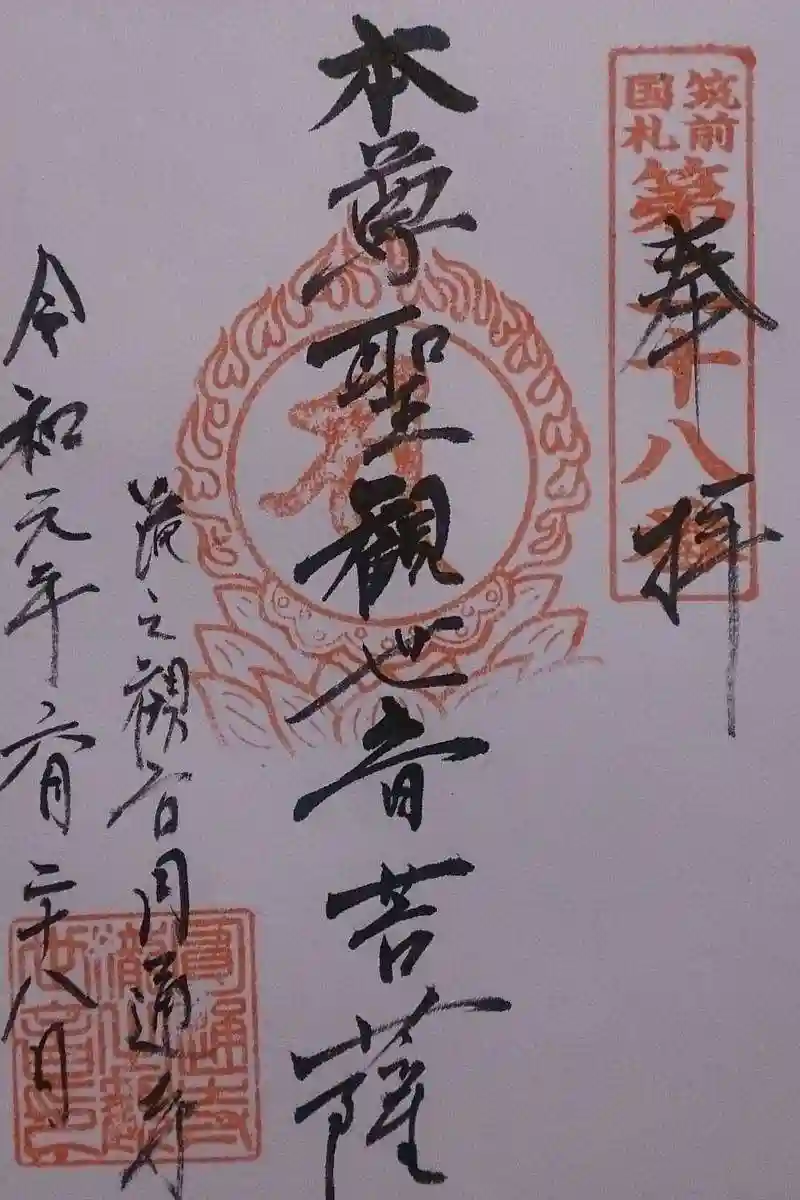 筑前
国札
第
十八番
奉拝
本尊聖観世音菩薩
滝之観音円通寺
令和元年六月二十八日